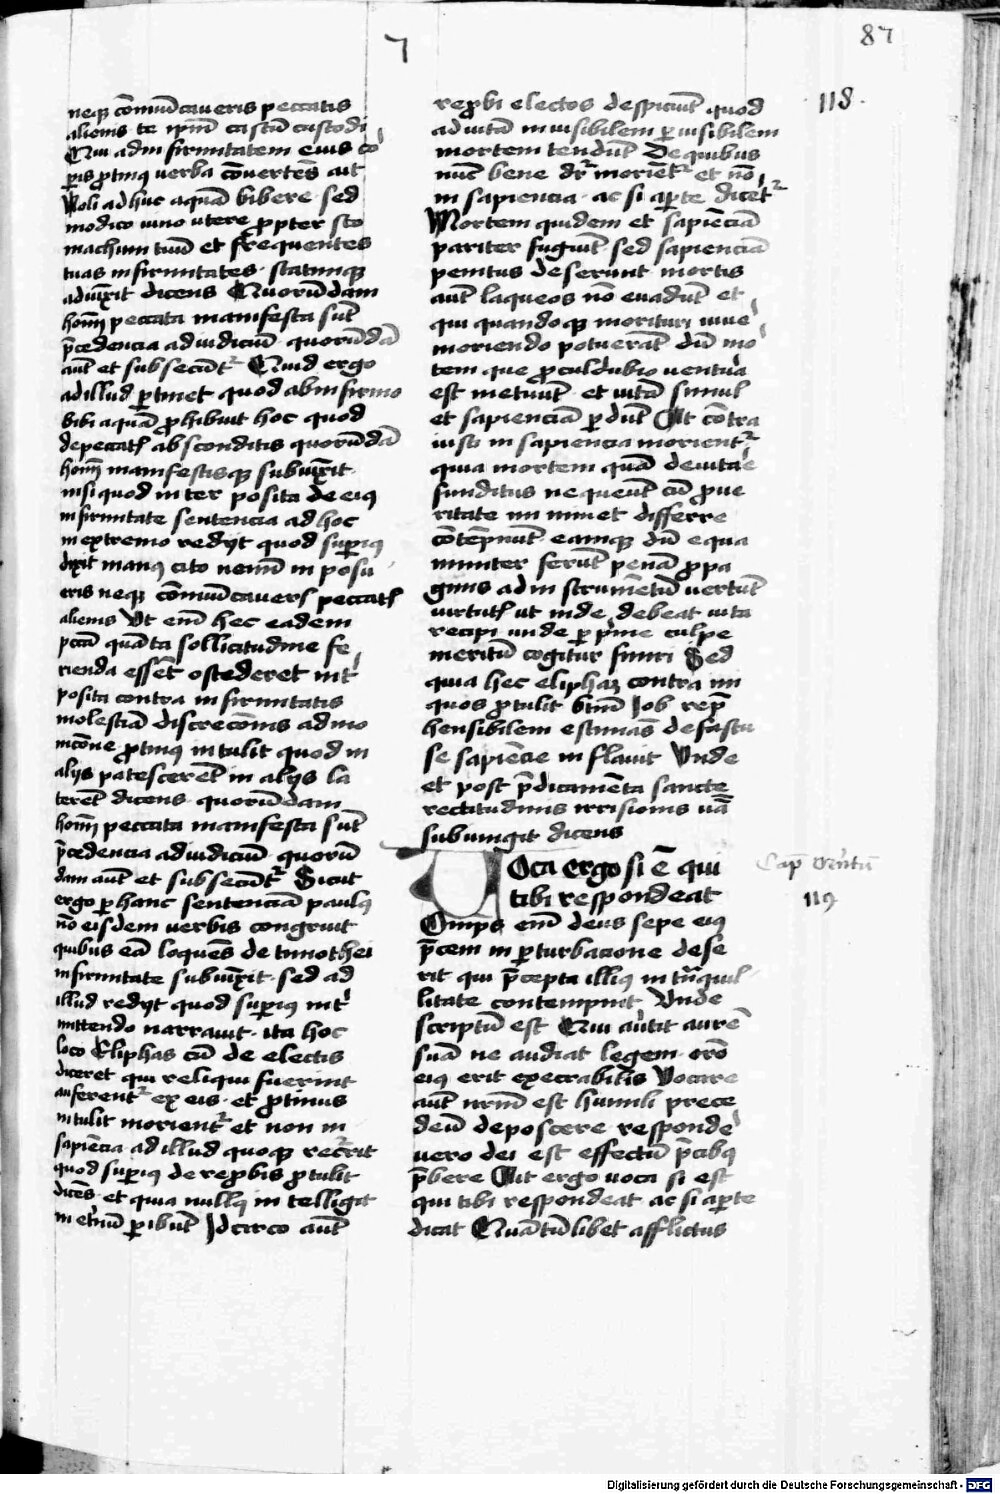 7
87
neqꝫ cōmūicaueris peccatis
alienis te ip̄m castū custodi
Qui adinfirmitatem eius co
ꝑis ꝓtinꝰ uerba cōuertēs ait
Noli adhuc aquā bibere sed
modico uino utere ꝓpter sto
machum tuū et frequentes
tuas infirmitates statimqꝫ
aduīxit dicens Quorūdam
hoīm peccata manifesta sūt
p̄cedencia adiudiciū quorūdā
aūt et subsecūt᷑ Quid ergo
adillud ꝑtinet quod abinfirmo
bibi aquā ꝓhibuit hoc quod
depeccatꝭ absconditis quorūdā
hoīm manifestisqꝫ subuīxit
nisi quod inter posita de eiꝰ
infirmitate sentencia adhoc
inextremo redijt quod suꝑiꝰ
dixit manꝰ cito nemī inposu
eris neqꝫ cōmūicauerꝭ peccatꝭ
alienis Vt em̄ hec eadem
pctā quāta sollicitudine fe
rienda essēt ostederet int᷑
posita contra infirmitatis
molestiā discrecōnis admo
nicōne ꝓtinꝰ intulit quod in
alijs patescerēt in alijs la
terēt dicens quorūdam
hoīm peccata manifesta sūt
p̄cedencia adiudiciū quorū
dam aūt et subsecūt᷑ Sicut
ergo ꝑ hanc sentenciā paulꝰ
nō eisdem uerbis congruit
quibus eā loquēs de timothei
infirmitate subuīxit sed ad
illud redijt quod suꝑiꝰ int᷑
mittendo narrauit ita hoc
loco Eliphas cū de electis
diceret qui reliqui fuerint
auferent᷑ ex eis et ꝓtinus
intulit morient᷑ et non in
sapiēcia adillud quoqꝫ recr̄rit
quod suꝑiꝰ de reꝓbis ꝓtulit
dicēs et quia nullꝰ intelligit
inet̄nū ꝑibūt Idcirco aūt
reꝓbi electos despiciūt quod
aduitā inuisibilem ꝑ uisibilem
mortem tendūt De quibus
nūc bene dr̄ moriēt᷑ et nō
in sapiencia ac si aꝑte dicet᷑
Mortem quidem et sapiēciā
pariter fugiūt sed sapienciā
penitus deserunt mortis
aūt laqueos nō euadūt et
qui quandoqꝫ morituri uiue
moriendo potuerāt dū mo
tem que ꝓculdubio uentu᷑a
est metuūt et uitā simul
et sapienciā ꝑdūt At cōtra
iusti in sapiencia morient᷑
quia mortem quā deuitare
funditus nequeūt cū ꝓ ue
ritate imminet differre
cōtēpnūt eamqꝫ dū equa
nimiter ferūt penā ꝓpa
ginis adinstrumētū uertūt
uirtutꝭ ut inde debeat uita
recipi unde ꝑ p̄me culpe
meritū cogitur finiri Sed
quia hec eliphaz contra ini
quos ꝓtulit btm̄ Job rep̄
hensibilem estimās defastu
se sapiēcie inflauit Vnde
et post p̄dicamēta sancte
rectitudinis irrisionis uā
subuingit dicens
Voca ergo si ē qui
tibi respondeat
Omps em̄ deus sepe eiꝰ
p̄cem in ꝑturbacione dese
rit qui p̄cepta illiꝰ in trāquil
litate contempnit Vnde
scriptū est Qui au᷑tit aurē
suā ne audiat legem orō
eiꝰ erit execrabilis Vocare
aūt nrm̄ est humili prece
deū deposcere responde᷑
uero dei est effectū p̄cibꝰ
p̄bere Ait ergo uoca si est
qui tibi respondeat ac si aꝑte
dicat Quātūlibet afflictus
118.
Cap̄ Qui᷑tū
119
Digitalisierung gefördert durch die Deutsche Forschungsgemeinschaft - DFG